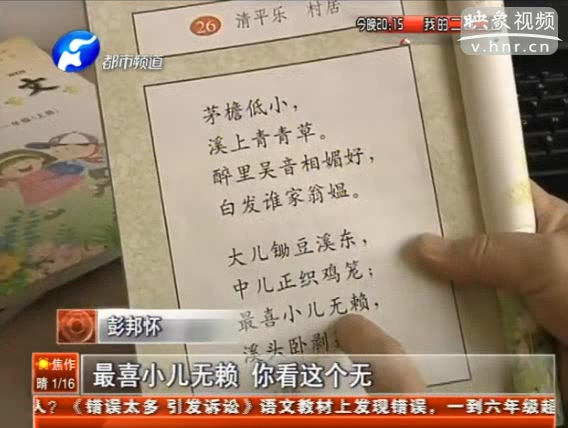 26 清平乐 村居
今晚20:15 我的二
映象视频
v.hnr.cn
都市频道
茅檐低小，
溪上青青草。
醉里吴音相媚好，
白发谁家翁媪。
大儿锄豆溪东，
中儿正织鸡笼；
最喜小儿无赖，
溪头卧剥
文
年级(上册)
彭邦怀
焦作
晴 1/16
最喜小儿无赖 你看这个无
人？《错误太多 引发诉讼》语文教材上发现错误，一到六年级超